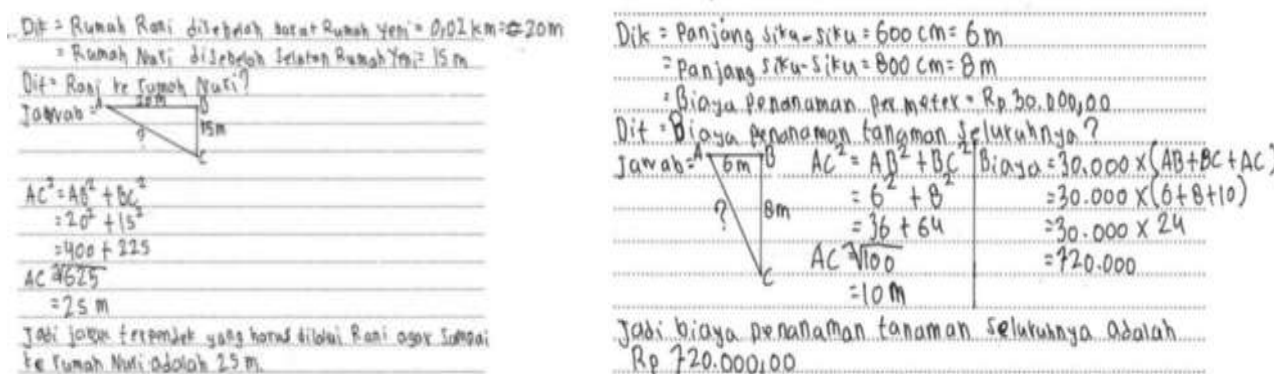 Dit = Rumah Rani disebelah barat Rumah Yeni = 0,02 km = 20m
= Rumah Nuri disebelah Selatan Rumah Yeni = 15 m
Dit = Rani ke rumah Nuri?
Jawab =
A 20m B
15m
?
C
AC² = AB² + BC²
= 20² + 15²
= 400 + 225
AC = √625
= 25 m
Jadi jarak terpendek yang harus dilalui Rani agar Sampai
ke rumah Nuri adalah 25 m.
Dik = Panjang siku-siku = 600 cm = 6 m
= Panjang siku-siku = 800 cm = 8 m
= Biaya penanaman per meter = Rp 30.000,00
Dit = Biaya penanaman tanaman seluruhnya?
Jawab =
A 6m B
8m
?
C
AC² = AB² + BC²
= 6² + 8²
= 36 + 64
AC = √100
= 10 m
Biaya = 30.000 x (AB + BC + AC)
= 30.000 x (6+8+10)
= 30.000 x 24
= 720.000
Jadi biaya penanaman tanaman seluruhnya adalah
Rp 720.000,00